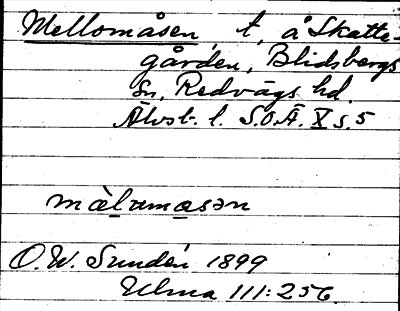 Mellomåsen, t, å Skatte-
gården, Blidsbergs
sn, Redvägs hd.
Älvsb. l. S.O.Ä. X s. 5
màlumasən
O. W. Sundén 1899
Ulma 111:256.